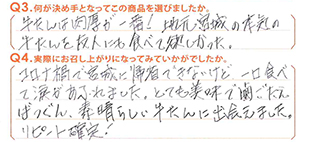 Q3.何が決め手となってこの商品を選びましたか。
牛たんは肉厚が一番!地元宮城の本気の
牛たんを友人にも食べて欲しかった。
Q4.実際にお召し上がりになってみていかがでしたか。
コロナ禍で宮城に帰省できないけど、一口食べ
て涙があふれました。とても美味で歯ごたえ
ばつぐん、素晴らしい牛たんに出会えました。
リピート確定!